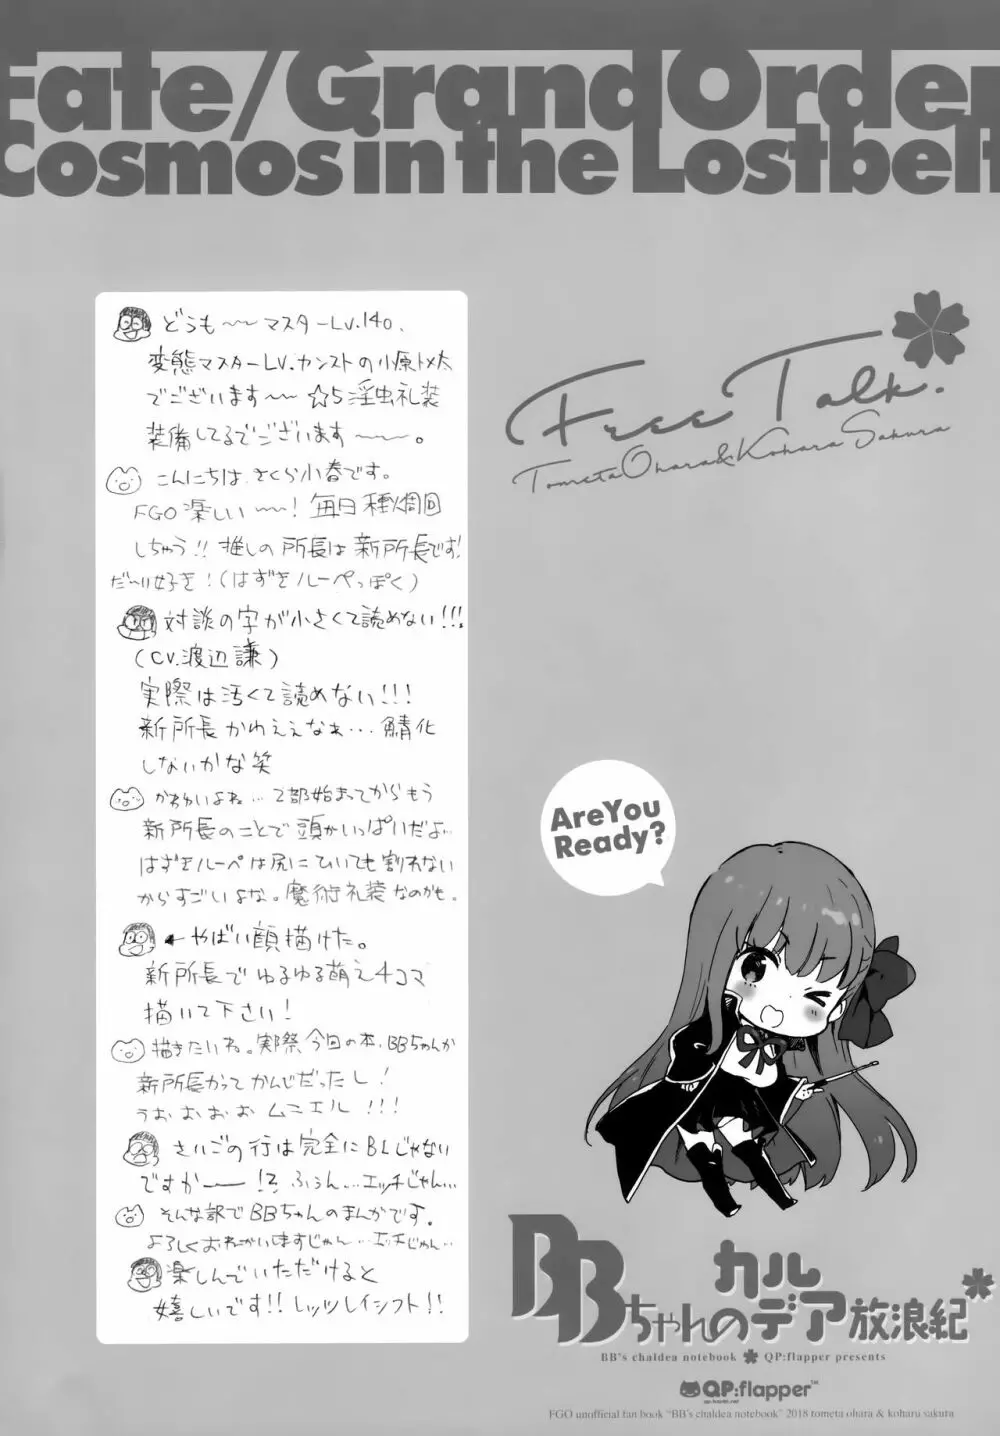 Fate/Grand Order
Cosmos in the Lostbelt
Free Talk.
Tometa Ohara & Koharu Sakura
どうも〜〜マスターLv.140、
変態マスターLV.カンストの小原トメ太
でございます〜〜☆5淫虫礼装
装備してるでございます〜〜。
こんにちは、さくら小春です。
FGO楽しい〜〜!毎日種火周回
しちゃう!!推しの所長は新所長です!
だ〜い好き!(はずきルーペっぽく)
対談の字が小さくて読めない!!!
(CV.渡辺謙)
実際は汚くて読めない!!!
新所長かわええなぁ…鯖化
しないかな笑
かわいいよね…2部始まってからもう
新所長のことで頭がいっぱいだよ…
はずきルーペは尻にひいても割れない
からすごいよな。魔術礼装なのかも。
←やばい顔描けた。
新所長でゆるゆる萌え4コマ
描いて下さい!
描きたいね。実際今回の本、BBちゃんか
新所長かってかんじだったし!
うおおおお ムニエル!!!
さいごの行は完全にBLじゃない
ですかー!?ふぅん…エッチじゃん…
そんな訳でBBちゃんのまんがです。
よろしくおねがいしますじゃん…エッチじゃん…
楽しんでいただけると
嬉しいです!!レッツレイシフト!!
AreYou
Ready?
BBちゃんのカルデア放浪紀
BB's chaldea notebook QP:flapper presents
QP:flapper™
FGO unofficial fan book "BB's chaldea notebook" 2018 tometa ohara & koharu sakura